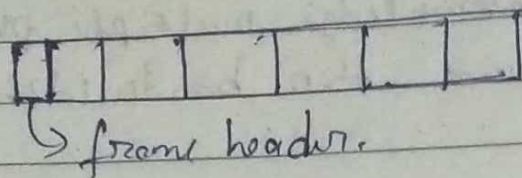 frame header.